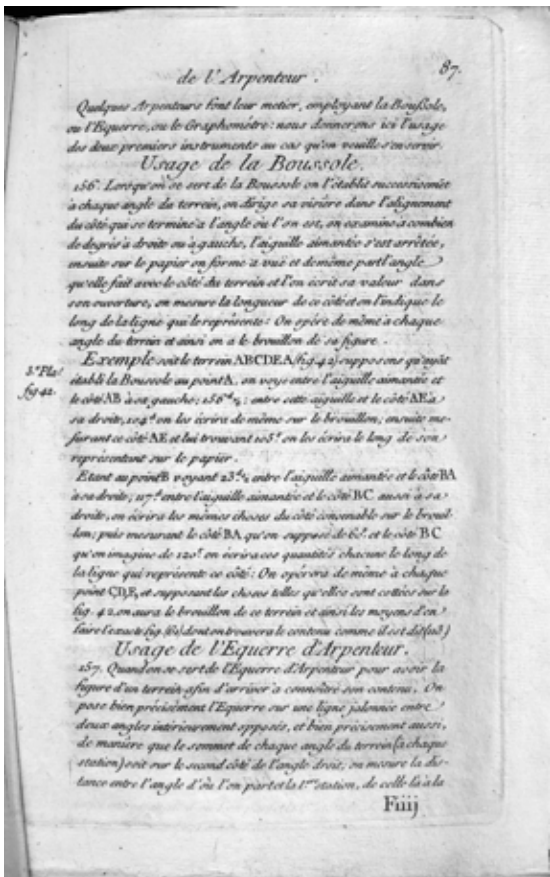 87.
de l'Arpenteur.
Quelques Arpenteurs font leur metier, employant la Boussole,
ou l'Equerre, ou le Graphométre: nous donnerons ici l'usage
des deux premiers instruments au cas qu'on veuille s'en servir.
Usage de la Boussole.
156. Lorsqu'on se sert de la Boussole on l'établit successivemēt
à chaque angle du terrein, on dirige sa visière dans l'alignement
du côté qui se termine a l'angle où l'on est, on examine à combien
de degrés à droite ou à gauche, l'aiguille aimantée s'est arrêtée,
ensuite sur le papier on forme à vuë et de même part l'angle
qu'elle fait avec le côté du terrein et l'on écrit sa valeur dans
son ouverture, on mesure la longueur de ce côté et on l'indique le
long de la ligne qui le représente: On opére de même à chaque
angle du terrein et ainsi on a le brouillon de sa figure.
Exemple soit le terrein ABCDEA (fig.42) supposons qu'ayāt
3.e Pla.
fig 42.
établi la Boussole au point A, on voye entre l'aiguille aimantée et
le côté AB à sa gauche; 156.d ½: entre cette aiguille et le côté AE à
sa droite, 104.d on les écrira de même sur le brouillon; ensuite me-
surant ce côté AE et lui trouvant 105.t on les écrira le long de son
représentant sur le papier.
Etant au point B voyant 23.d ½ entre l'aiguille aimantée et le côté BA
à sa droite; 117.d entre l'aiguille aimantée et le côté BC aussi à sa
droite, on écrira les mêmes choses du côté convenable sur le brouil-
lon; puis mesurant le côté BA qu'on suppose de et le côté BC
qu'on imagine de 120.t on écrira ces quantités chacune le long de
la ligne qui représente ce côté: On opérera de même à chaque
point C,D,E, et supposant les choses telles qu'elles sont cottées sur la
fig. 42. on aura le brouillon de ce terrein et ainsi les moyens d'en
faire l'exacte fig. dont on trouvera le contenu comme il est dit
Usage de l'Equerre d'Arpenteur.
157. Quand on se sert de l'Equerre d'Arpenteur pour avoir la
figure d'un terrein afin d'arriver a connoître son contenu. On
pose bien précisément l'Equerre sur une ligne jalonnée entre
deux angles intérieurement opposés, et bien précisement aussi,
de manière que le sommet de chaque angle du terrein (à chaque
station) soit sur le second côté de l'angle droit, on mesure la dis-
tance entre l'angle d'où l'on part et la 1.ere station, de celle là à la
Fiiij